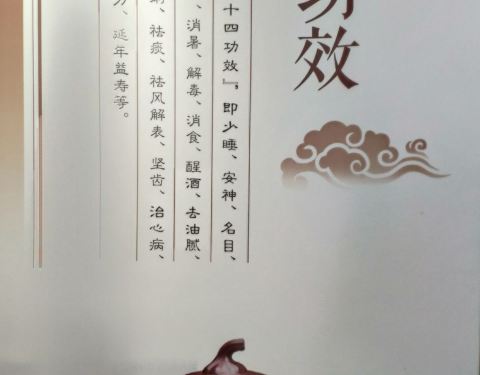 功效
十四功效』,即少睡、安神、名目、
、消暑、解毒、消食、醒酒、去油腻、
、祛痰、祛风解表、坚齿、治心病、
力、延年益寿等。